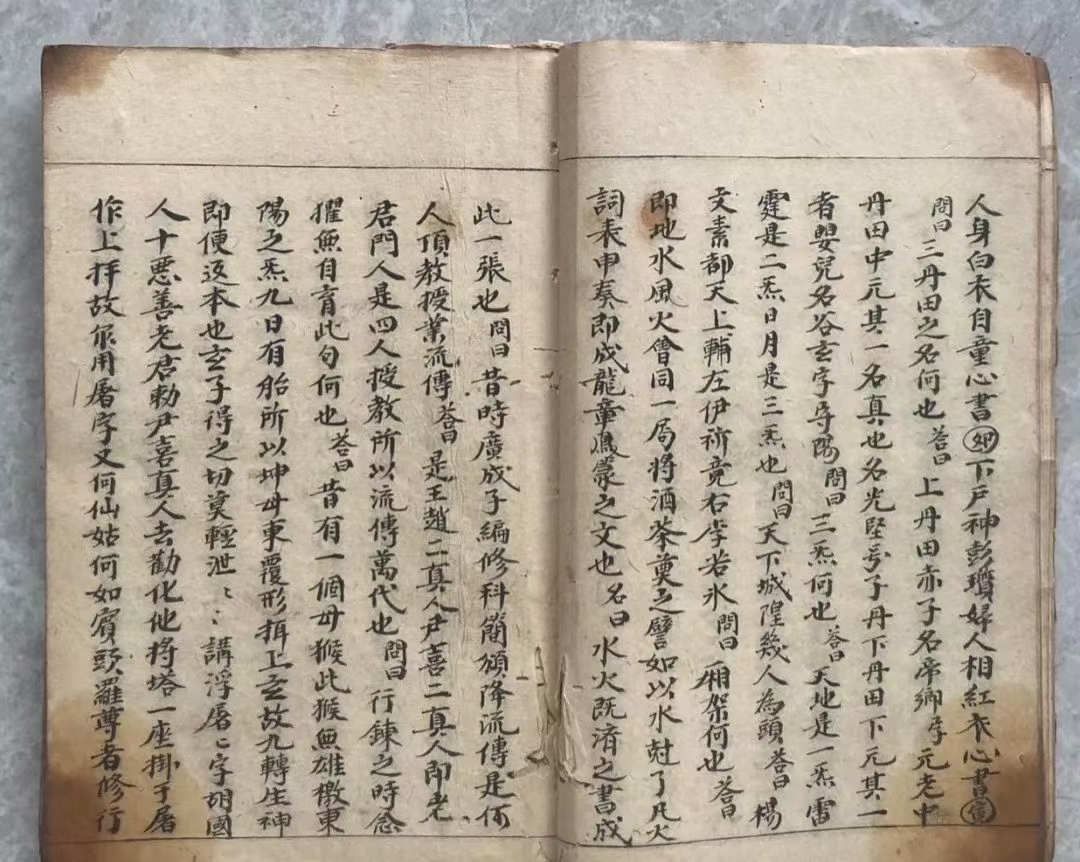 人身白衣自童心書㚼下尸神彭瓆婦人相紅衣心書㚼
問曰三丹田之名何也答曰上丹田赤子名帝卿字元老中
丹田中元其一名真也名光堅号子丹下丹田下元其一
者嬰兒名谷玄字𡬶陽問曰三炁何也答曰天地是一炁雷
霆是二炁日月是三炁也問曰天下城隍幾人為頭答曰楊
文素都天上輔左伊祈竟右李若氷問曰廂架何也答曰
即地水風火會同一局將酒茶奠之譬如以水尅了凡火
詞表申奏即成龍章鳳篆之文也名曰水火既济之書成
此一張也問曰昔時廣成子編修科簡頒降流傳是何
人頂教授業流傳答曰是王趙二真人尹喜二真人即老
君門人是四人授教所以流傳萬代也問曰行鍊之時念
玃無自育此句何也答曰昔有一個母猴此猴無雄檄東
陽之炁九日有胎所以坤母東覆形揖上玄故九轉生神
即便返本也玄子得之切莫輕泄〻〻講浮屠〻字胡國
人十惡善老君勅尹喜真人去勸化他將塔一座掛于屠
作上拜故㐲用屠字又何仙姑何如賔頭羅尊者修行